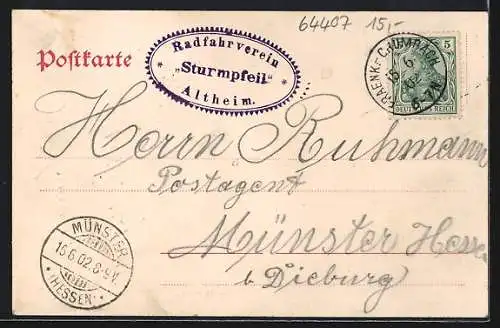 64407 15,-
Postkarte
Radfahrverein
„Sturmpfeil“
Altheim.
5
DEUTSCHES REICH
Herrn Ruhmann
Postagent
Münster Hessen
b. Dieburg
MÜNSTER
16.6.02.8-9V.
(HESSEN)